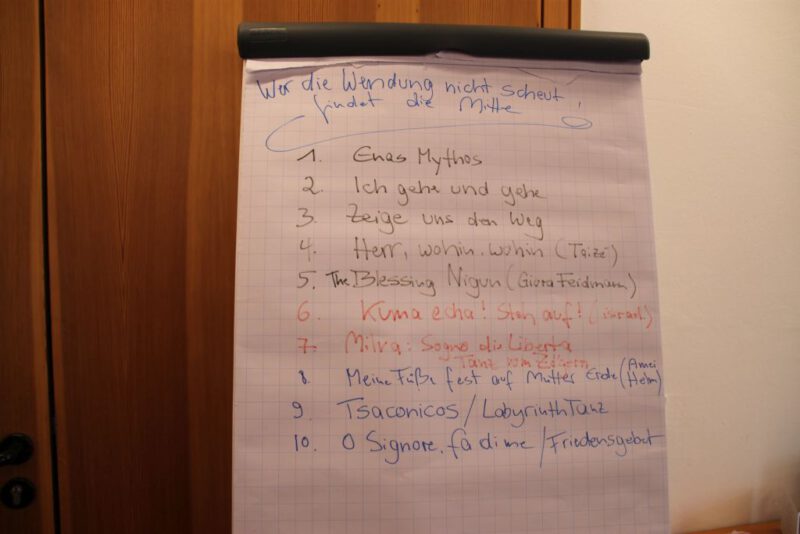 Wer die Wendung nicht scheut,
findet die Mitte
1. Enas Mythos
2. Ich gehe und gehe
3. Zeige uns den Weg
4. Herr, wohin, wohin (Taizé)
5. The Blessing Nigun (Giora Feidmann)
6. Kuma echa! Steh auf! (israel.)
7. Milva: Sogno di Liberta
Tanz vom
8. Meine Füße fest auf Mutter Erde (Amei Helm)
9. Tsaconicos / LabyrinthTanz
10. O Signore, fa di me / Friedensgebet